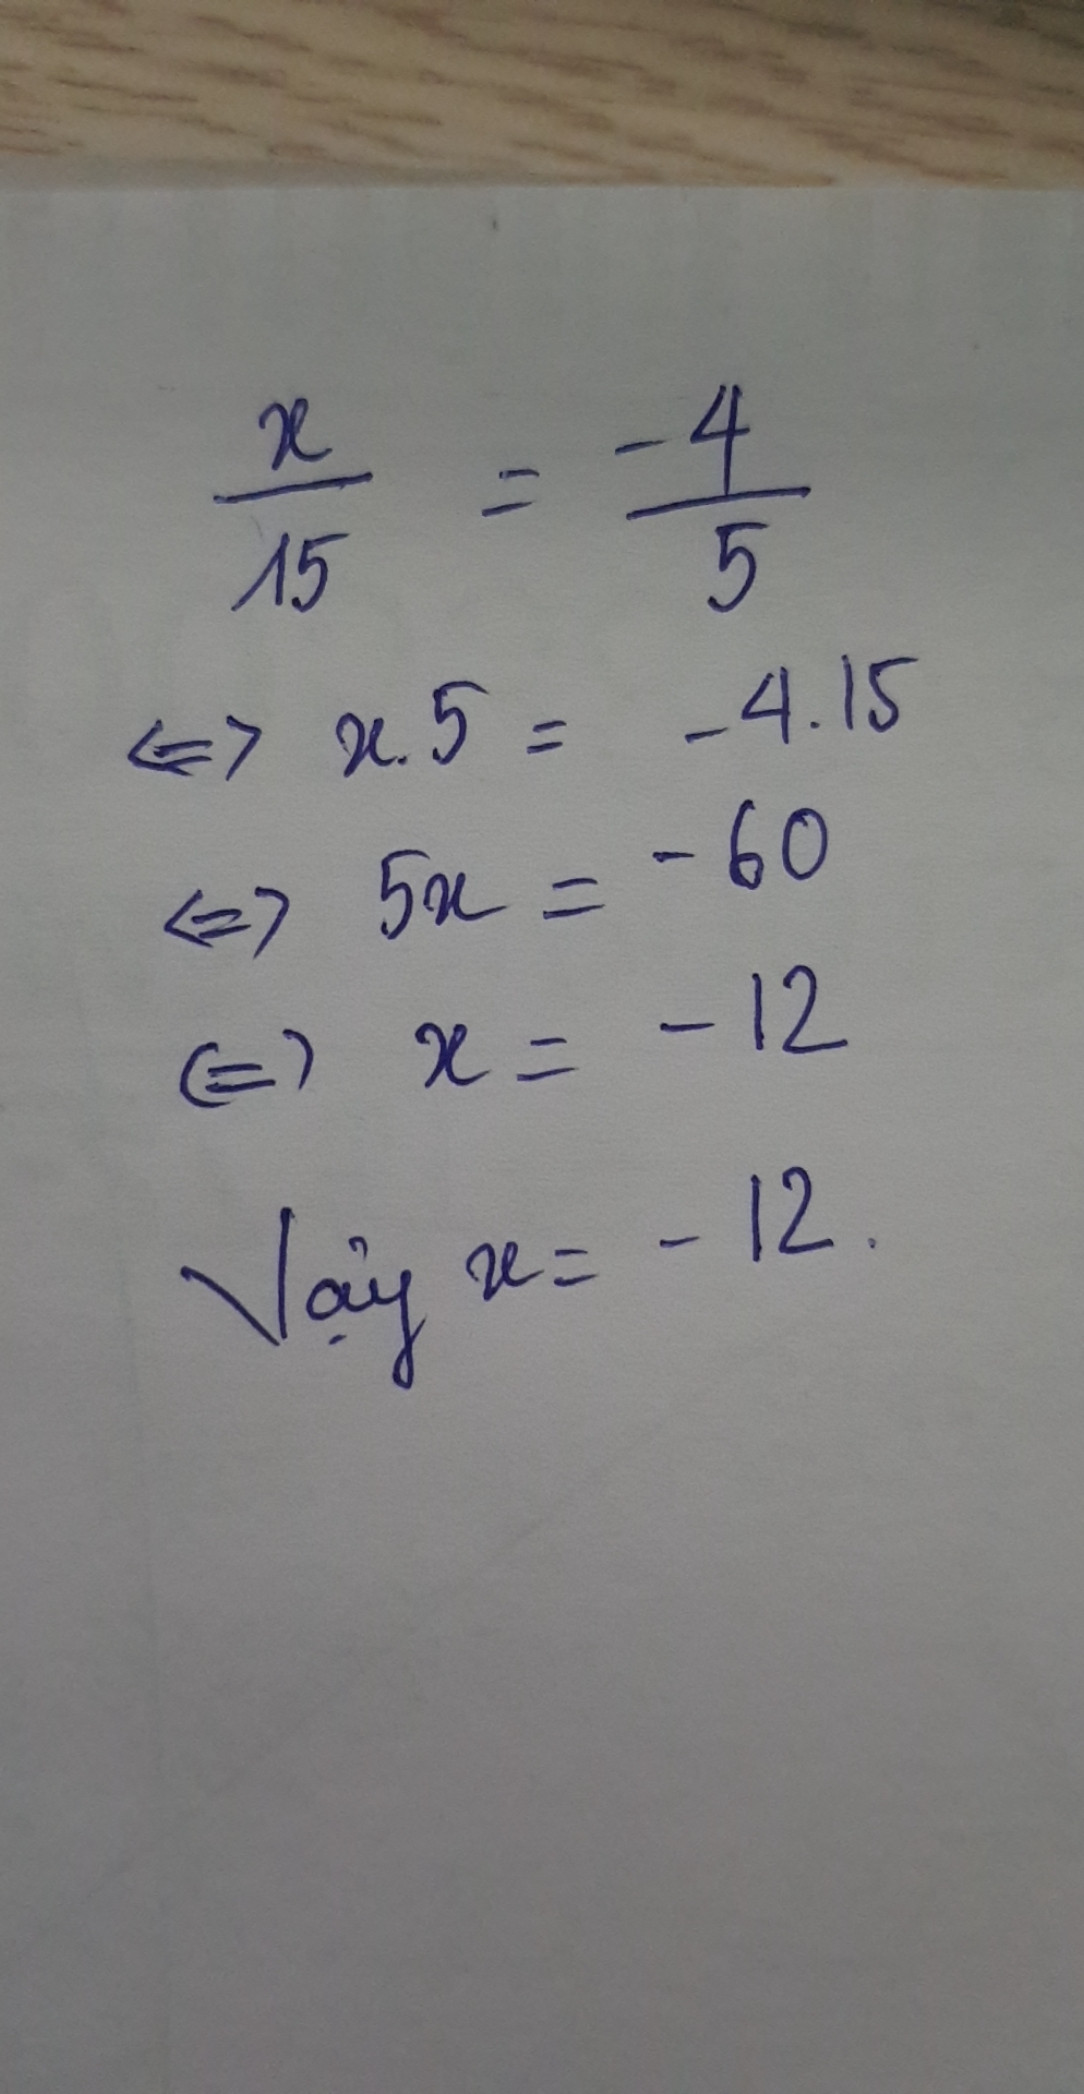 x/15 = -4/5
<=> x.5 = -4.15
<=> 5x = -60
<=> x = -12
Vậy x = -12.